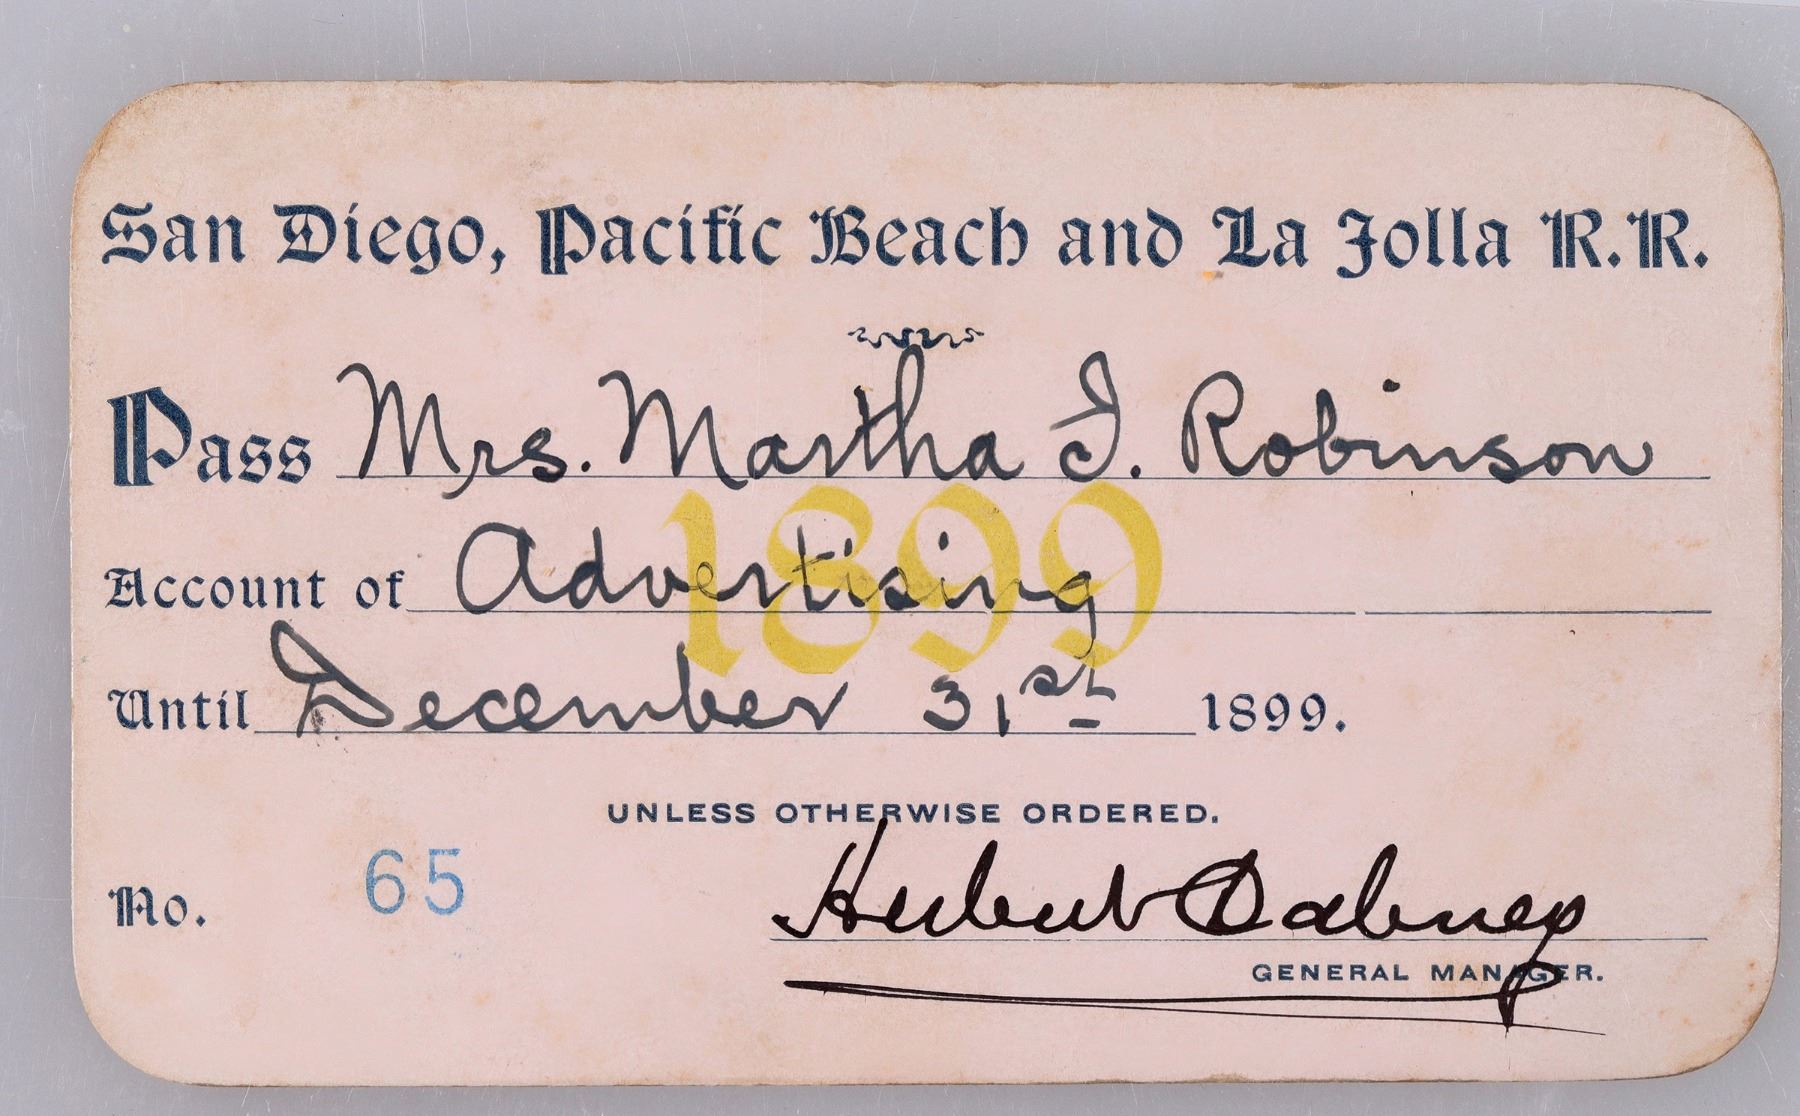 San Diego, Pacific Beach and La Jolla R.R.
Pass Mrs. Martha I. Robinson
1899
Account of Advertising
Until December 31st 1899.
UNLESS OTHERWISE ORDERED.
No. 65
Herbert Dabney
GENERAL MANAGER.